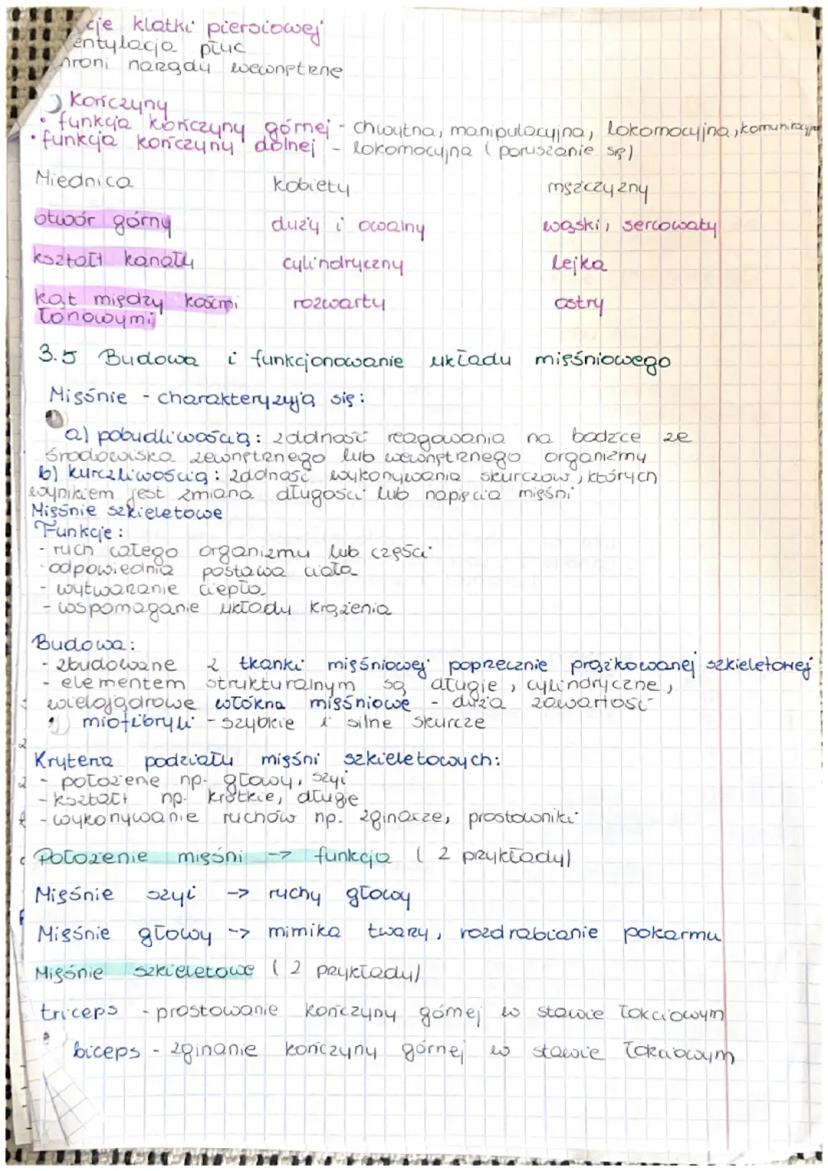 cje klatki piersiowej
entylacja płuc
hroni narządy wewnętrzne
Kończyny
• funkcja kończyny górnej - chwytna, manipulacyjna, lokomocyjna,
• funkcja kończyny dolnej - lokomocyjna (poruszanie się)
Miednica kobiety mężczyzny
otwór górny duży i owalny wąski, sercowaty
kształt kanału cylindryczny lejka
kąt między kośćmi rozwarty ostry
łonowymi
3.5 Budowa i funkcjonowanie układu mięśniowego
Mięśnie - charakteryzują się:
a) pobudliwością: zdolność reagowania na bodźce ze
środowiska zewnętrznego lub wewnętrznego organizmu
b) kurczliwością: zdolność wykonywania skurczów, których
wynikiem jest zmiana długości lub napięcia mięśni
Mięśnie szkieletowe
Funkcje:
- ruch całego organizmu lub części
- odpowiednia postawa ciała
- wytwarzanie ciepła
- wspomaganie układu krążenia
Budowa:
- zbudowane z tkanki mięśniowej poprzecznie prążkowanej szkieletowej
- elementem strukturalnym są długie, cylindryczne,
wielojądrowe włókna mięśniowe - duża zawartość
miofibryli - szybkie i silne skurcze
Kryteria podziału mięśni szkieletowych:
- położenie np. głowy, szyi
- kształt np. krótkie, długie
- wykonywanie ruchów np. zginacze, prostowniki
Położenie mięśni -> funkcja (2 przykłady)
Mięśnie szyi -> ruchy głowy
Mięśnie głowy -> mimika twarzy, rozdrabianie pokarmu
Mięśnie szkieletowe (2 przykłady)
triceps - prostowanie kończyny górnej w stawie łokciowym
biceps - zginanie kończyny górnej w stawie łokciowym